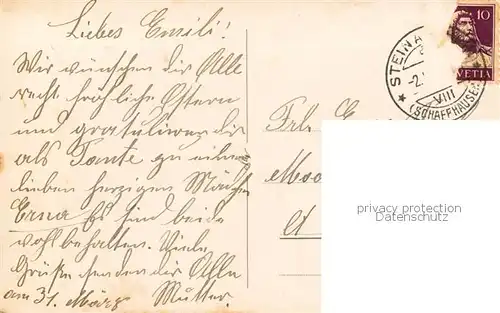 Liebes Emili!
Wir wünschen dir Alle
recht fröhliche Ostern
und gratulieren dir
als Tante zu einem
lieben herzigen Mädchen
Erna Es sind beide
wohlbehalten. Viele
Grüße senden dir Alle
am 31. März Mutter.
10
VETIA
STEIN A
-2.
VIII
(SCHAFFHAUSEN)
Frl. E
Moo
A
privacy protection
Datenschutz